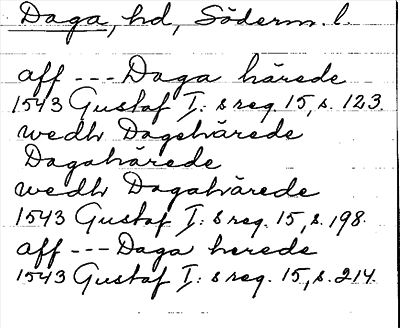 Daga, hd, Söderm. l.
aff --- Daga härede
1543 Gustaf I: s reg. 15, s. 123.
wedh Dagehärede
Dagahärede
wedh Dagahärede
1543 Gustaf I: s reg. 15, s. 198.
aff --- Daga herede
1543 Gustaf I: s reg. 15, s. 214.